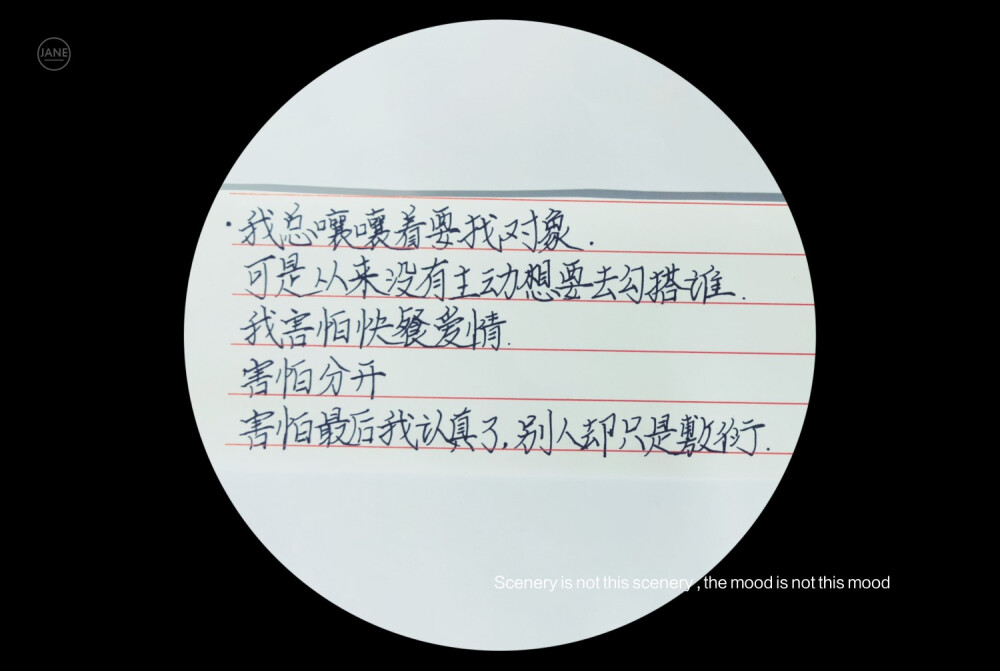 JANE
·我总嚷嚷着要找对象.
可是从来没有主动想要去勾搭谁.
我害怕快餐爱情.
害怕分开
害怕最后我认真了,别人却只是敷衍.
Scenery is not this scenery , the mood is not this mood